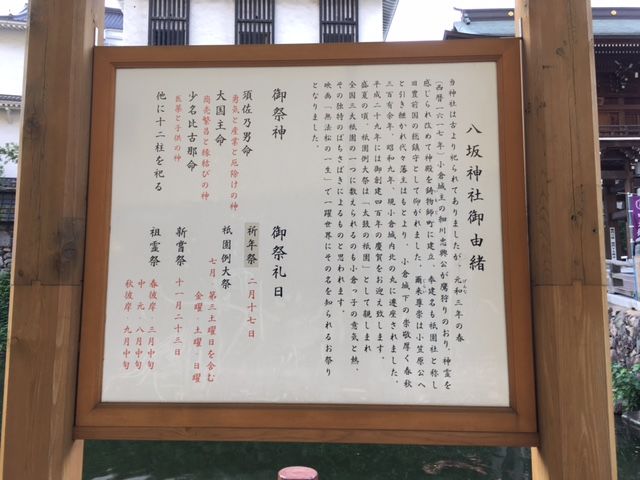 八坂神社御由緒
当神社は古より祀られてありましたが、元和三年の春
(西暦一六一七年)小倉城主の細川忠興公が鷹狩りのおり、神霊を
感じられ改めて神殿を鋳物師町に建立、奉建名も祇園社と称し
旧豊前国の総鎮守として仰がれました。爾来尊崇は小笠原公へ
と引き継かれ代々藩主はもとより、小倉城下の崇敬厚く春秋
三百有余年、昭和九年、現小倉城内北の丸に遷座されました。
平成二十九年には御創建四百年の慶賀をお迎え致します。
盛夏の頃、祇園例大祭は「太鼓の祇園」として親しまれ
全国三大祇園の一つに数えられるのも小倉っ子の意気と熱、
その独特のばちさばきによるものと思われます。
映画「無法松の一生」で一躍世界にその名を知られるお祭り
となりました。
御祭神
須佐乃男命
勇気と産業と厄除けの神
大国主命
商売繁昌と縁結びの神
少名比古那命
医薬と子供の神
他に十二柱を祀る
御祭礼日
祈年祭 二月十七日
祇園例大祭
七月・第三土曜日を含む
金曜・土曜・日曜
新嘗祭 十一月二十三日
祖霊祭 春彼岸・三月中旬
中元・八月中旬
秋彼岸・九月中旬